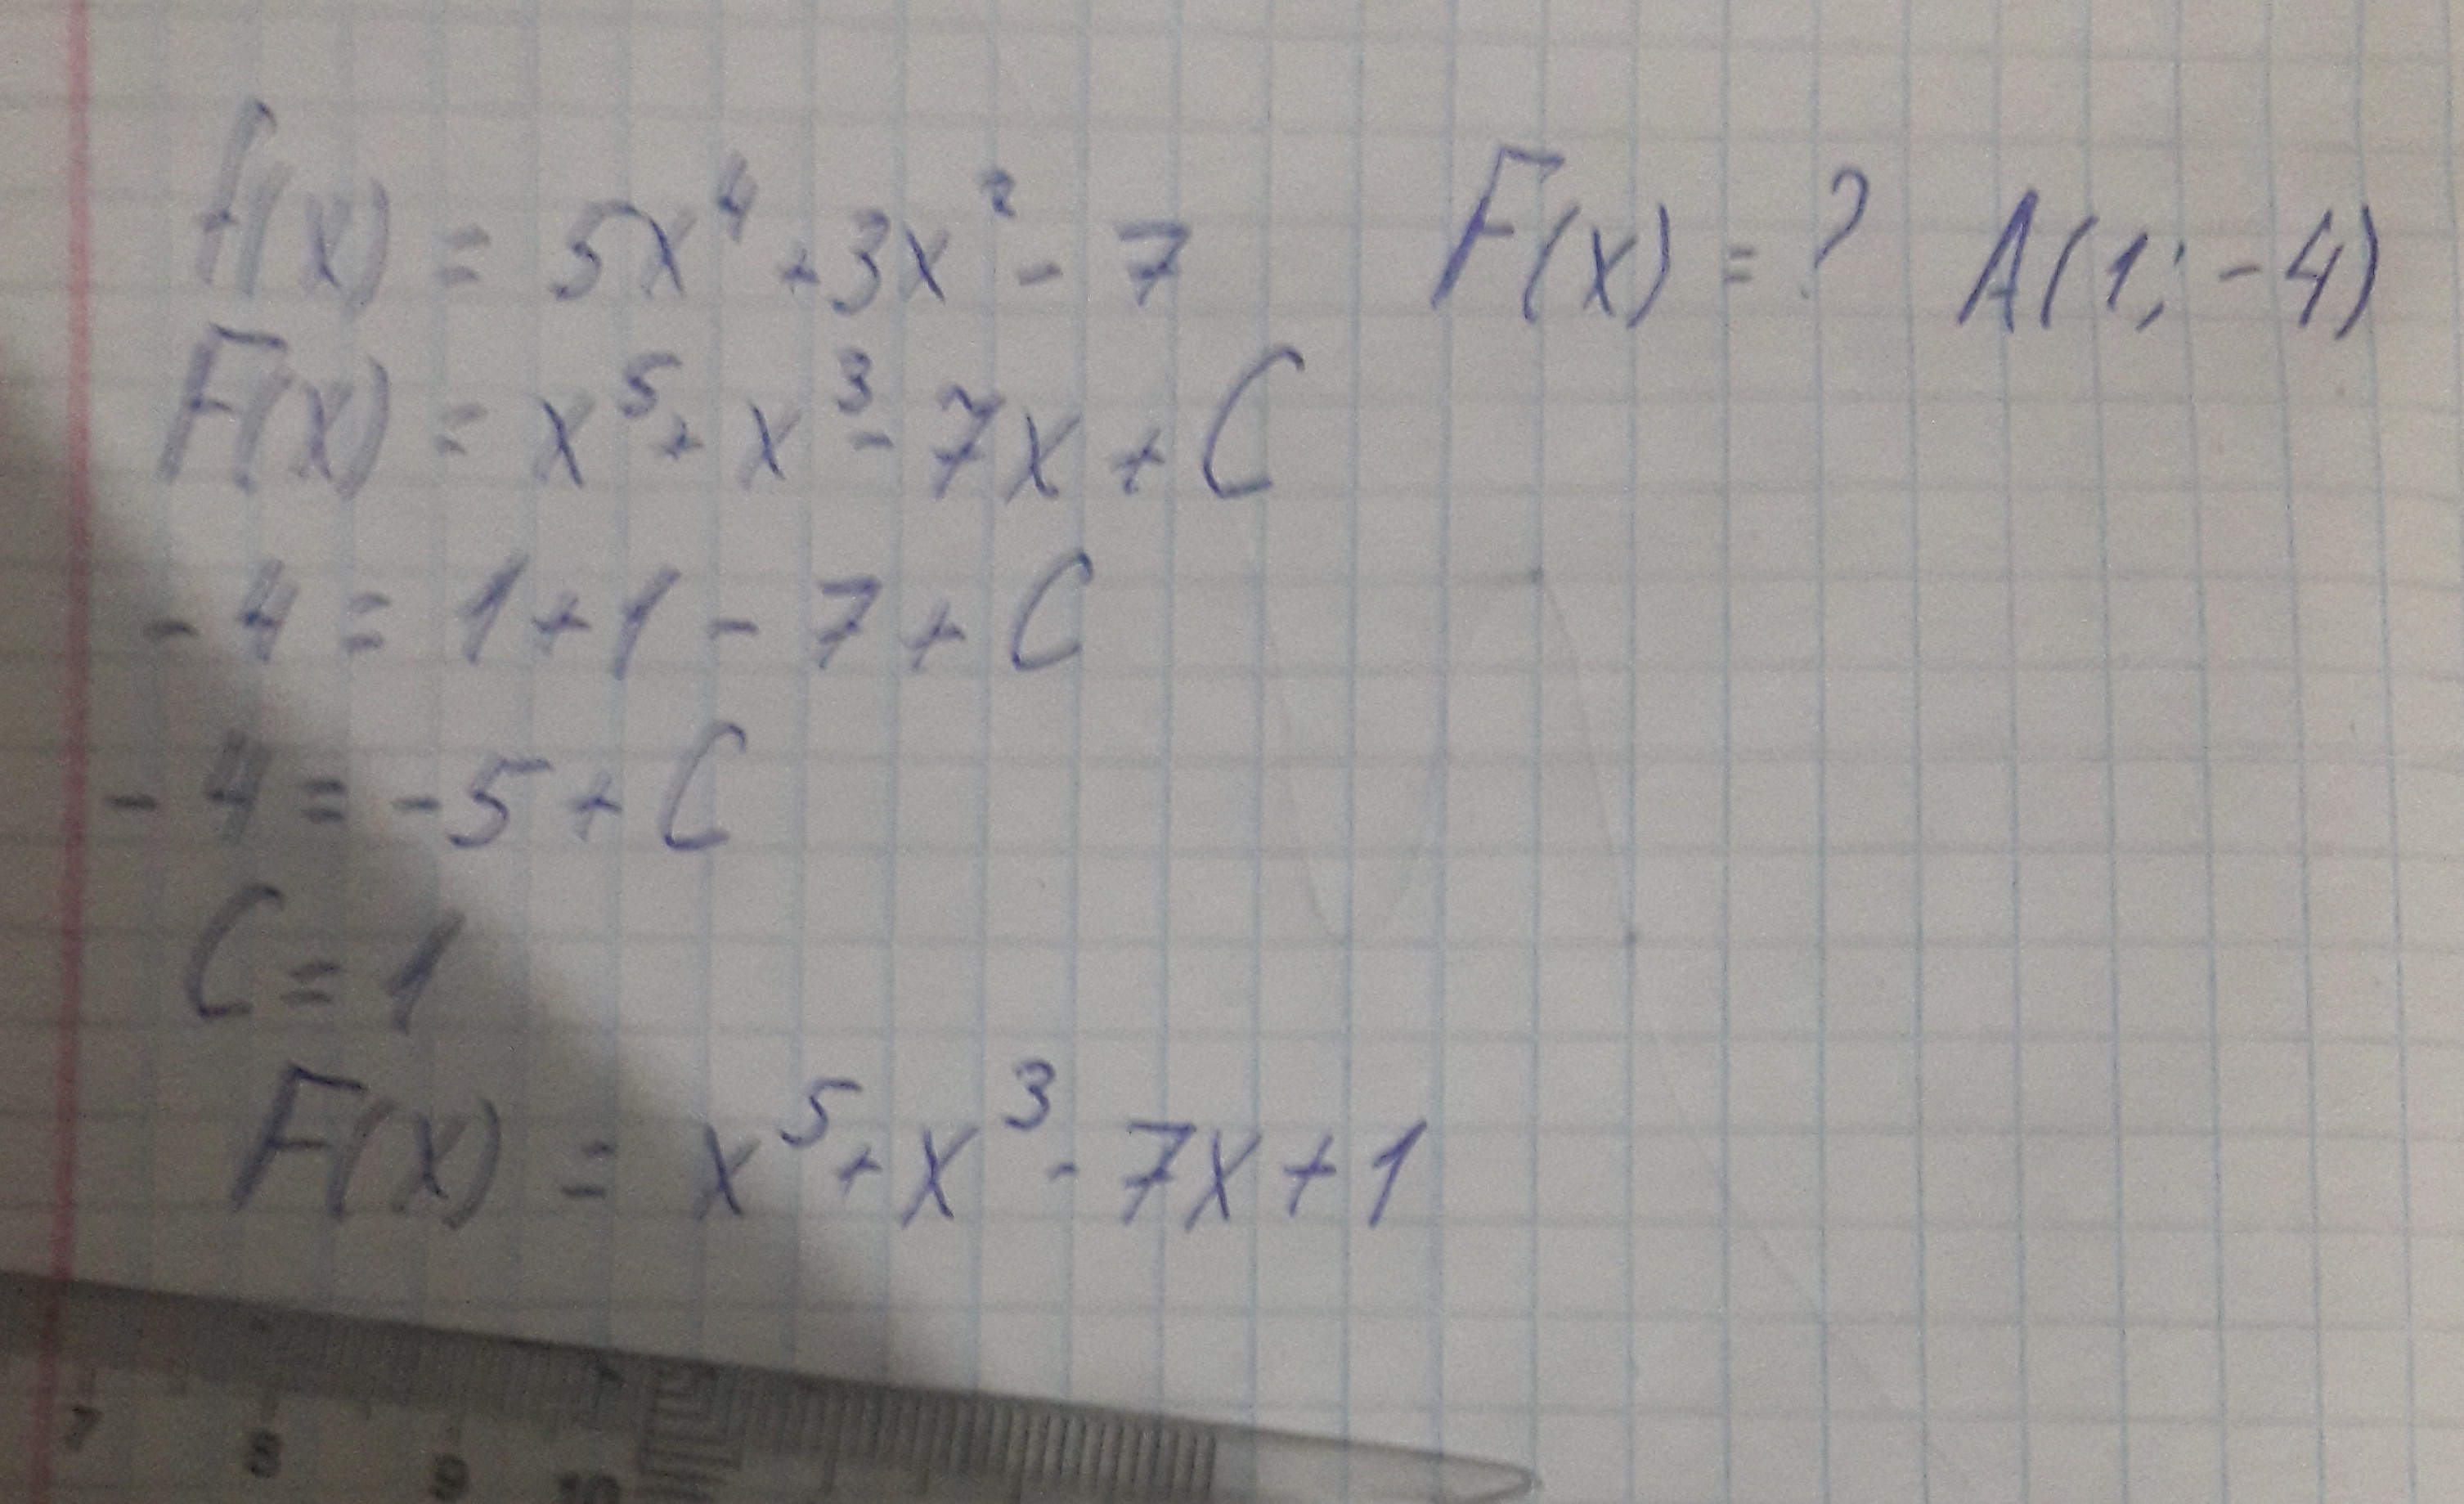 f(x) = 5x⁴ + 3x² - 7 F(x) = ? A(1; -4)
F(x) = x⁵ + x³ - 7x + C
- 4 = 1 + 1 - 7 + C
- 4 = -5 + C
C = 1
F(x) = x⁵ + x³ - 7x + 1
7 8 9 10